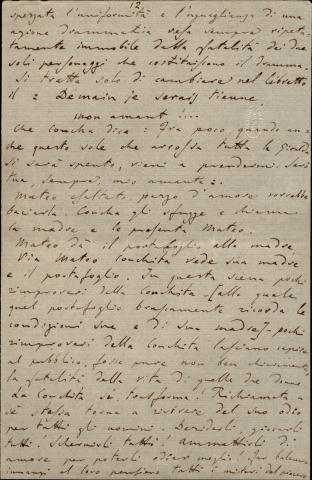 12
spezzata l'uniformità e l'uguaglianza di una
azione drammatica resa sempre
immobile dalla fatalità dei due
soli personaggi che costituiscono il dramma.
Si tratta solo di cambiare nel libretto
il : Demain je serais tienne,
mon amant !...
che Concha dica : Fra poco, quando an-
che questo sole che arrossa tutta la Giralda
si sarà spento, vieni a prendermi. Sarò
tua, sempre, mio amante :.
Mateo esaltato, pazzo d'amore vorrebbe
baciarla. Concha gli sfugge e chiama
la madre e le presenta Mateo.
Mateo dà il portafoglio alla madre
Via Mateo Conchita vede sua madre
e il portafoglio. In questa scena pochi
rimproveri della Conchita [alla quale
quel portafoglio bruscamente ricorda le
condizioni sue e di sua madre] pochi
rimproveri della Conchita lasciano capire
al pubblico, fosse pure non ben chiaramente,
la fatalità della vita di quelle due donne
La Conchita si trasforma ! Richiamata a
sè stessa torna a vivere del suo odio
per tutti gli uomini. Deriderli, giocarli
tutti ! Schernirli tutti ! ammetterli di
amore per poterli odiar meglio ! far balenare
innanzi al loro pensiero tutti i misteri del piacere